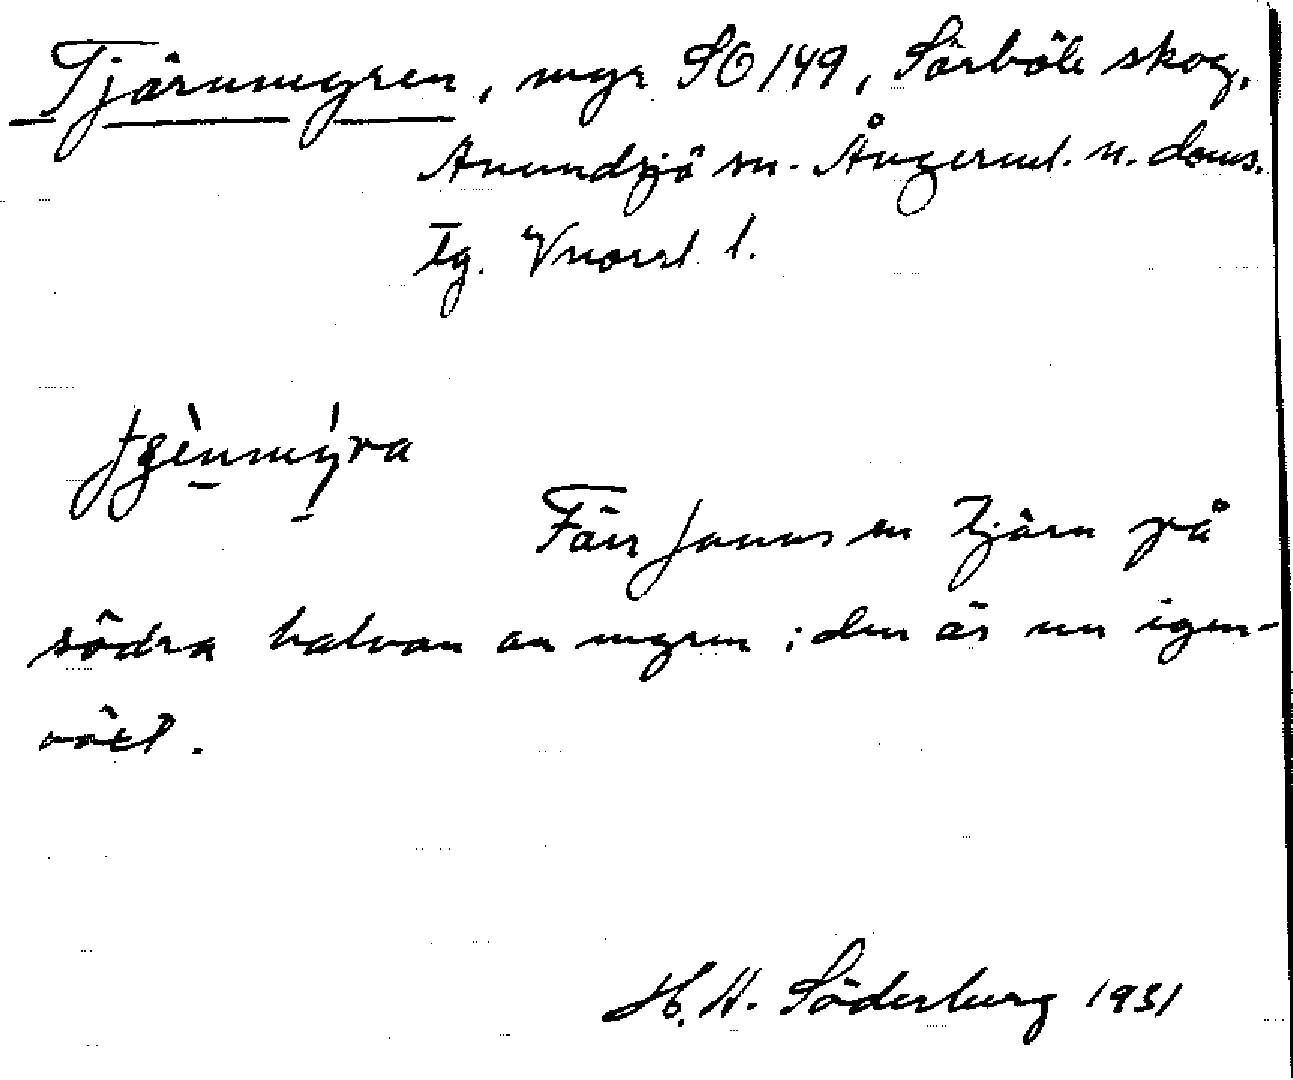 Tjärnmyren, myr SO 149, Sörböle skog,
Anundsjö sn. Ångerml. n. doms.
tg. Vnorrl. l.
Förr fanns en tjärn på
södra halvan av myren; den är nu igen-
växt.
H. A. Söderberg 1931